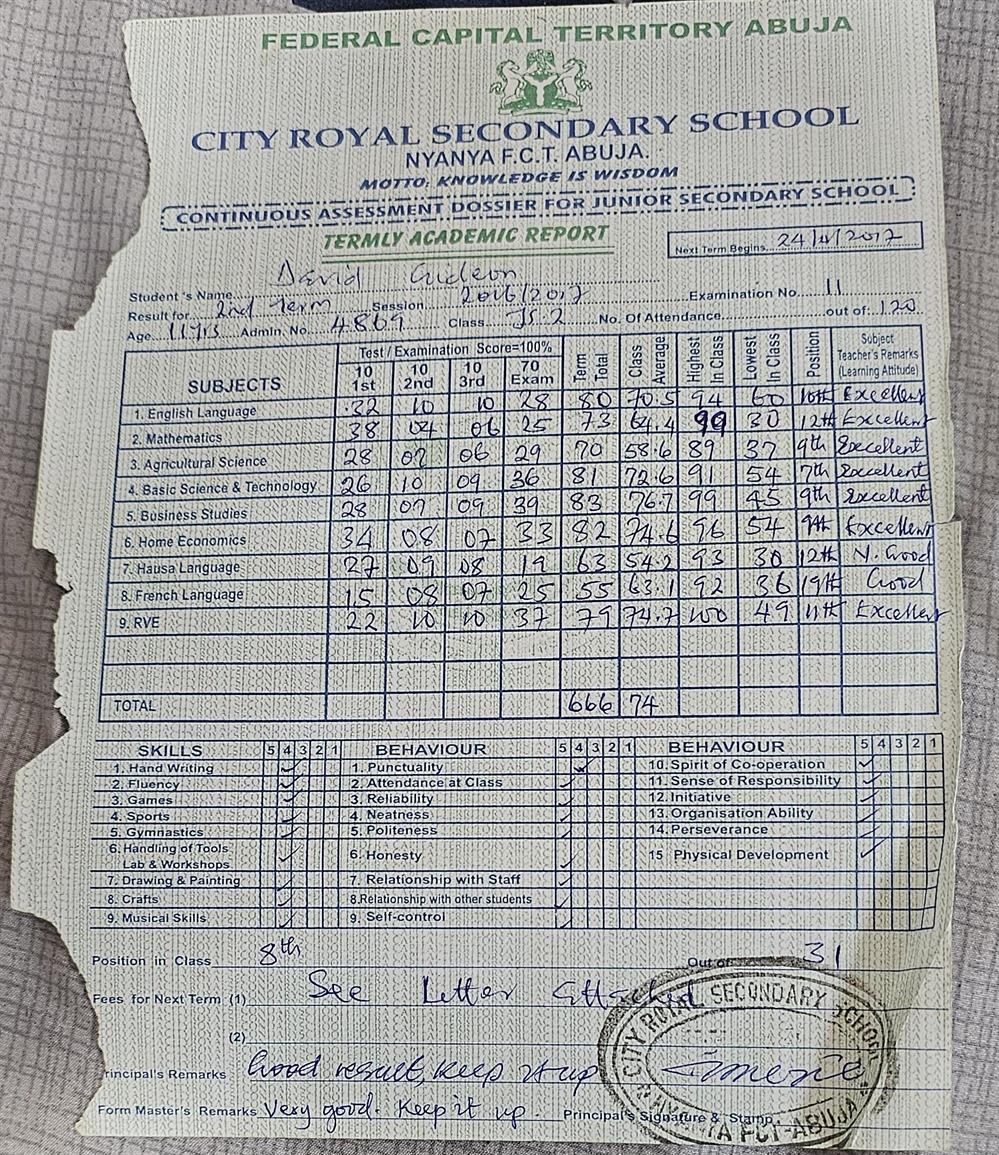 FEDERAL CAPITAL TERRITORY ABUJA
CITY ROYAL SECONDARY SCHOOL
NYANYA F.C.T. ABUJA.
MOTTO: KNOWLEDGE IS WISDOM
CONTINUOUS ASSESSMENT DOSSIER FOR JUNIOR SECONDARY SCHOOL
TERMLY ACADEMIC REPORT
Next Term Begins 24/4/2017
Student's Name David Gideon
Result for 2nd Term Session 2016/2017 Examination No 11
Age 11yrs Admin. No. 4869 Class JS 2 No. Of Attendance out of 120
SUBJECTS Test / Examination Score=100% Term Total Class Average Highest In Class Lowest In Class Position Subject Teacher's Remarks (Learning Attitude)
10 1st 10 2nd 10 3rd 70 Exam
1. English Language 32 10 10 28 80 70.5 94 60 10th Excellent
2. Mathematics 38 04 06 25 73 64.4 99 30 12th Excellent
3. Agricultural Science 28 07 06 29 70 58.6 89 37 9th Excellent
4. Basic Science & Technology 26 10 09 36 81 72.6 91 54 7th Excellent
5. Business Studies 28 07 09 39 83 76.7 99 45 9th Excellent
6. Home Economics 34 08 07 33 82 74.6 96 54 9th Excellent
7. Hausa Language 27 09 08 19 63 54.2 93 30 12th V. Good
8. French Language 15 08 07 25 55 63.1 92 36 19th Good
9. RVE 22 10 10 37 79 74.7 100 49 11th Excellent
TOTAL 666 74
SKILLS 5 4 3 2 1 BEHAVIOUR 5 4 3 2 1 BEHAVIOUR 5 4 3 2 1
1. Hand Writing 1. Punctuality 10. Spirit of Co-operation
2. Fluency 2. Attendance at Class 11. Sense of Responsibility
3. Games 3. Reliability 12. Initiative
4. Sports 4. Neatness 13. Organisation Ability
5. Gymnastics 5. Politeness 14. Perseverance
6. Handling of Tools Lab & Workshops 6. Honesty 15 Physical Development
7. Drawing & Painting 7. Relationship with Staff
8. Crafts 8. Relationship with other students
9. Musical Skills 9. Self-control
Position in Class 8th Out of 31
Fees for Next Term (1) See Letter attached
(2)
rincipal's Remarks Good result, keep it up
Form Master's Remarks Very good. Keep it up. Principal's Signature & Stamp
CITY ROYAL SECONDARY SCHOOL
FCT-ABUJA